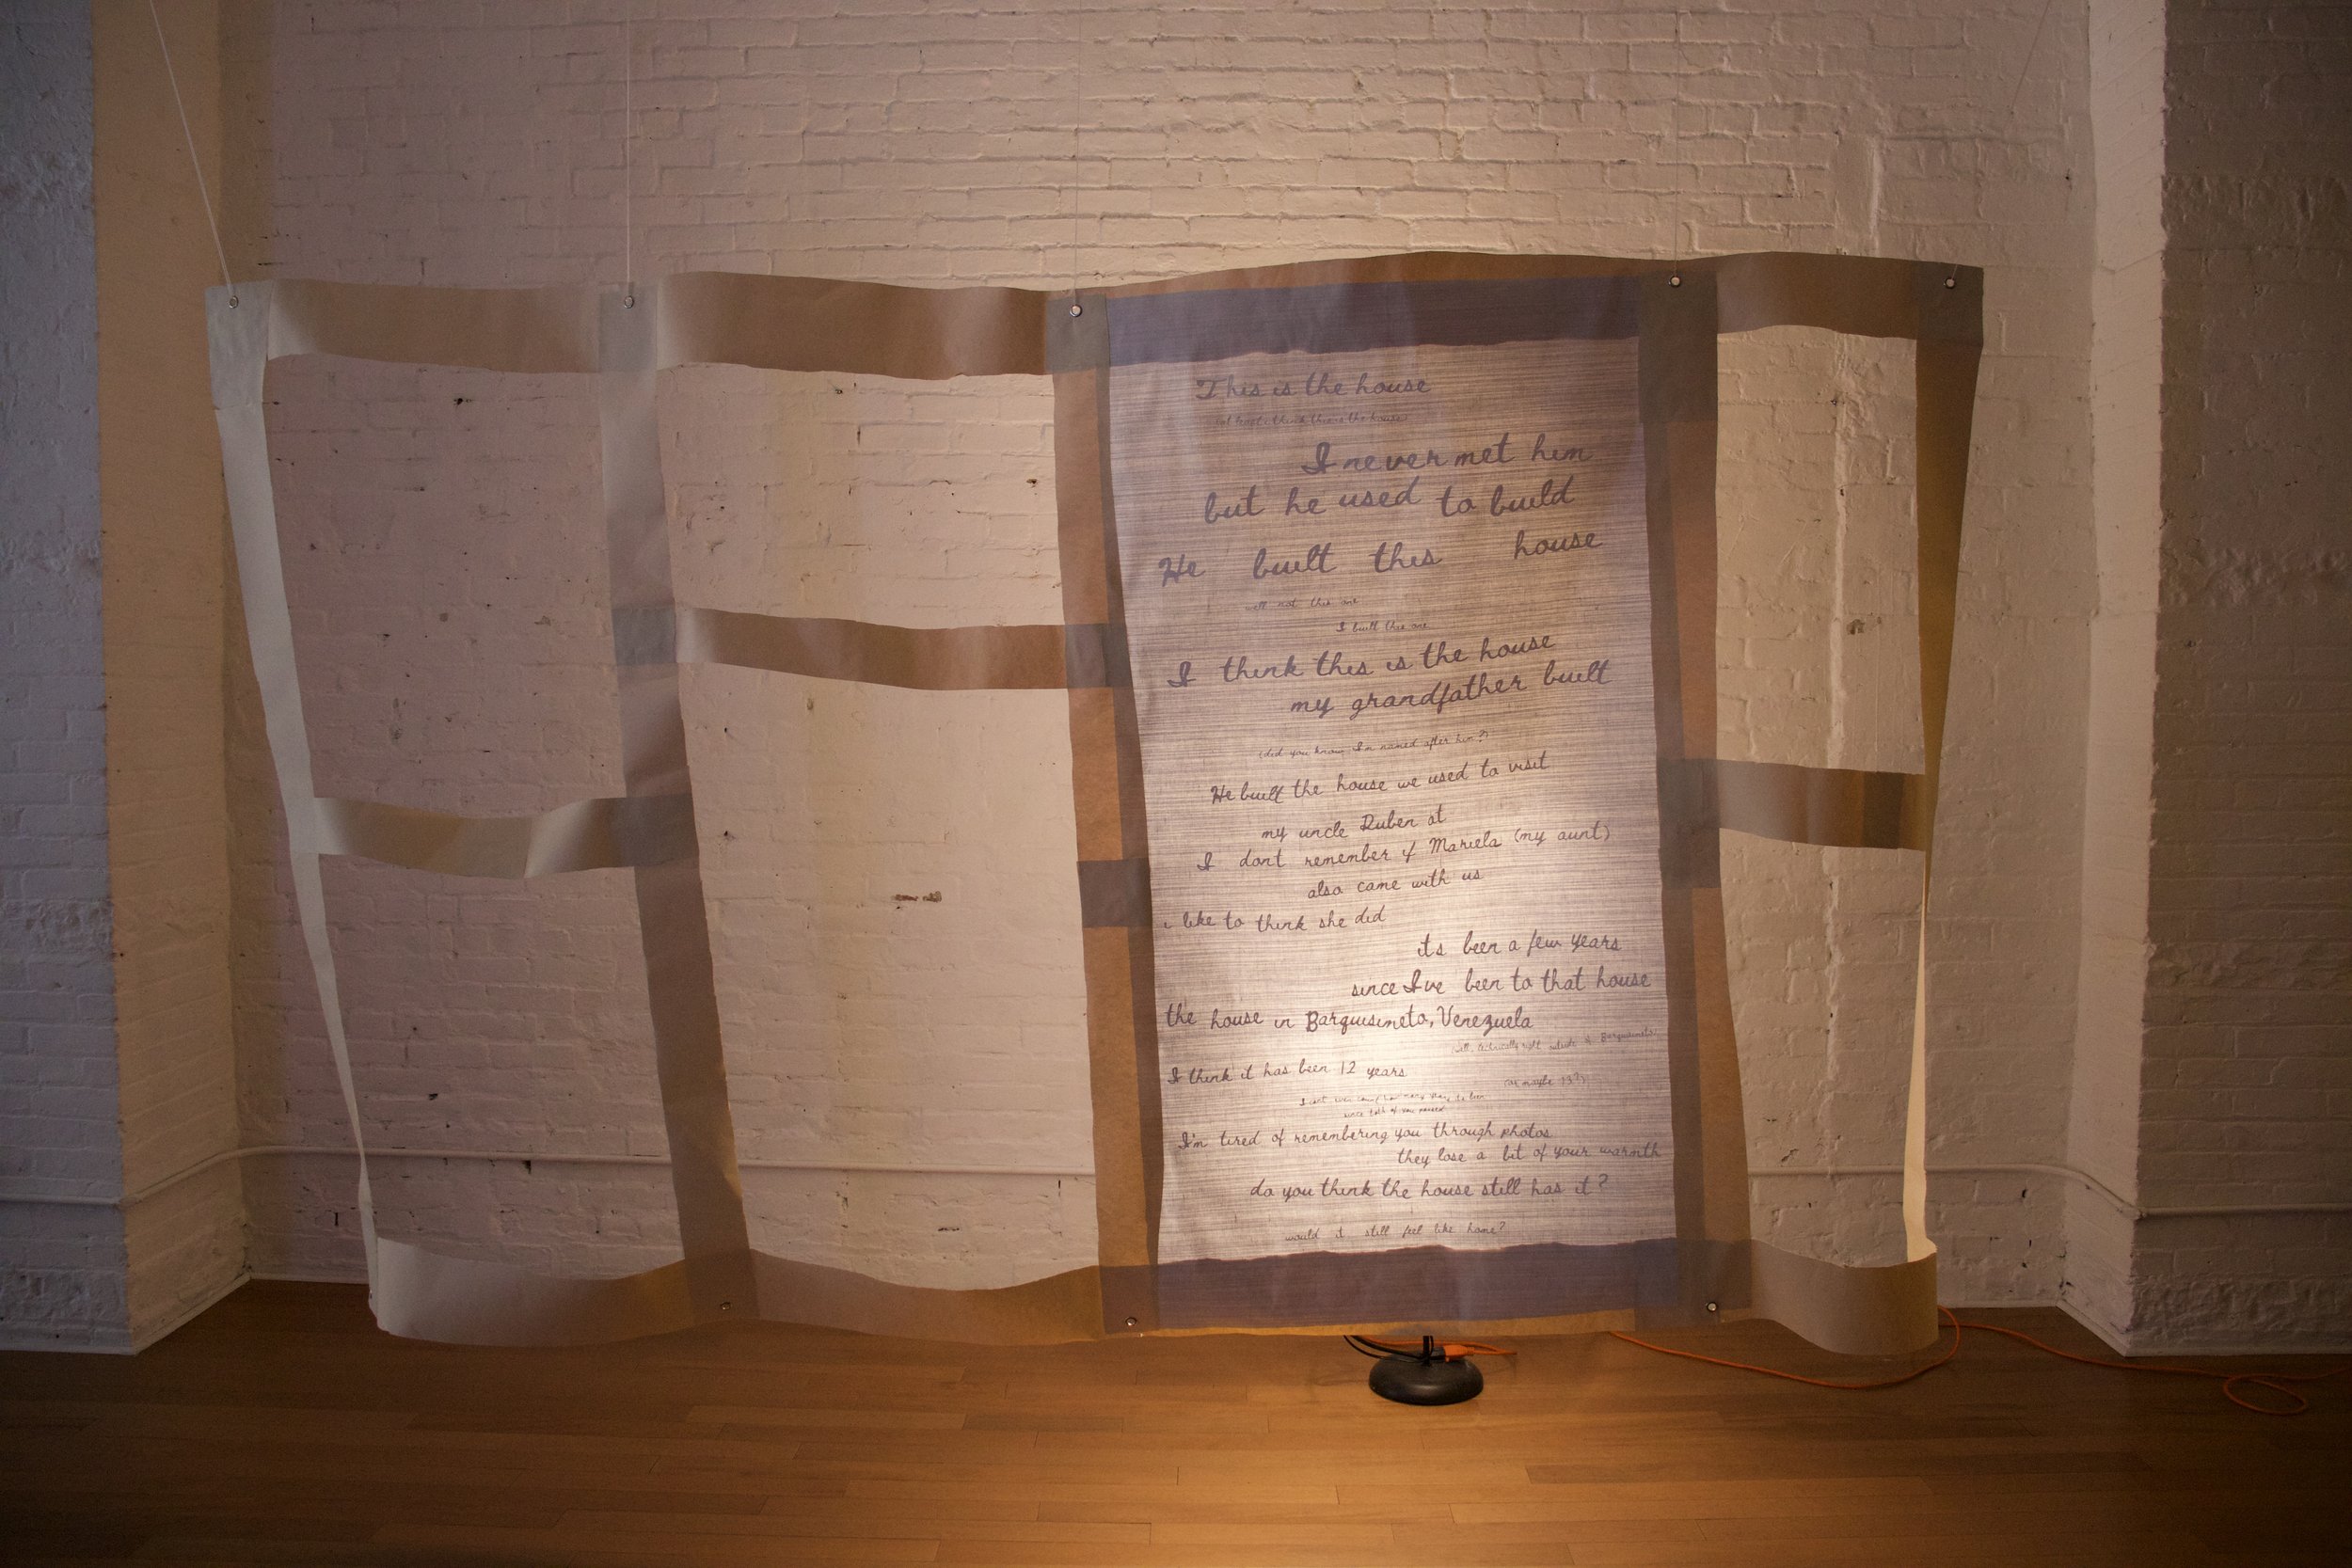 This is the house
think this is the house
I never met him
but he used to build
He built this house
well not this one
I built this one
I think this is the house
my grandfather built
(did you know I'm named after him?)
He built the house we used to visit
my uncle Ruben at
I dont remember if Mariela (my aunt)
also came with us
i like to think she did
its been a few years
since I've been to that house
the house in Barquisimeto, Venezuela
(well, technically right outside of Barquisimeto)
I think it has been 12 years
(or maybe 13?)
I cant even count how many years its been
since both of you passed
I'm tired of remembering you through photos
they lose a bit of your warmth
do you think the house still has it?
would it still feel like home?